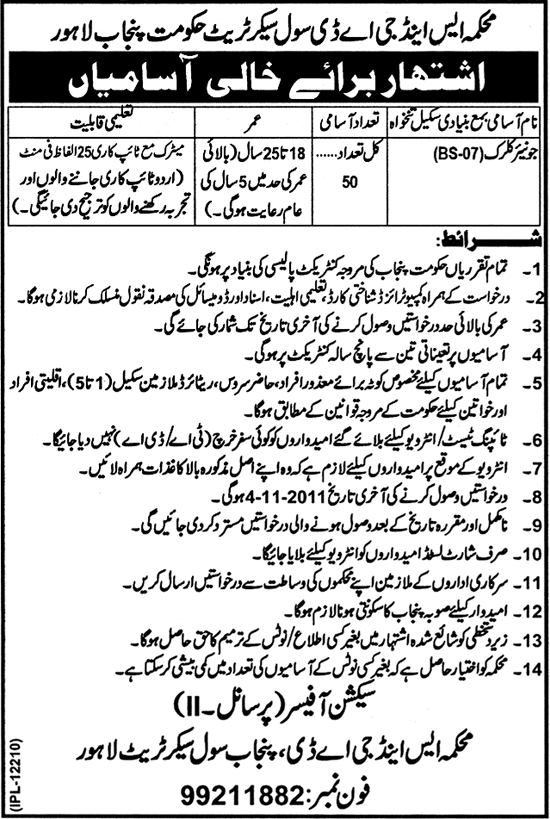 محکمہ ایس اینڈ جی اے ڈی سول سیکرٹریٹ حکومت پنجاب لاہور
اشتہار برائے خالی آسامیاں
نام آسامی بمع بنیادی سکیل تنخواہ
تعداد آسامی
عمر
تعلیمی قابلیت
جونیئر کلرک (BS-07)
کل تعداد......
50
18 تا 25 سال (بالائی
عمر کی حد میں 5 سال کی
عام رعایت ہو گی۔)
میٹرک مع ٹائپ کاری 25 الفاظ فی منٹ
(اردو ٹائپ کاری جاننے والوں اور
تجربہ رکھنے والوں کو ترجیح دی جائیگی۔)
شرائط:
1۔ تمام تقرریاں حکومت پنجاب کی مروجہ کنٹریکٹ پالیسی کی بنیاد پر ہونگی۔
2۔ درخواست کے ہمراہ کمپیوٹرائزڈ شناختی کارڈ، تعلیمی اہلیت، اسناد اور ڈومیسائل کی مصدقہ نقول منسلک کرنا لازمی ہو گا۔
3۔ عمر کی بالائی حد درخواستیں وصول کرنے کی آخری تاریخ تک شمار کی جائے گی۔
4۔ آسامیوں پر تعیناتی تین سے پانچ سالہ کنٹریکٹ پر ہو گی۔
5۔ تمام آسامیوں کیلئے مخصوص کوٹہ برائے معذور افراد، حاضر سروس، ریٹائرڈ ملازمین سکیل (1 تا 5)، اقلیتی افراد
اور خواتین کیلئے حکومت کے مروجہ قوانین کے مطابق ہو گا۔
6۔ ٹائپنگ ٹیسٹ/انٹرویو کیلئے بلائے گئے امیدواروں کو کوئی سفر خرچ (ٹی اے/ڈی اے) نہیں دیا جائیگا۔
7۔ انٹرویو کے موقع پر امیدواروں کیلئے لازم ہے کہ وہ اپنے اصل مذکورہ بالا کاغذات ہمراہ لائیں۔
8۔ درخواستیں وصول کرنے کی آخری تاریخ 4-11-2011 ہو گی۔
9۔ نامکمل اور مقررہ تاریخ کے بعد وصول ہونے والی درخواستیں مسترد کر دی جائیں گی۔
10۔ صرف شارٹ لسٹڈ امیدواروں کو انٹرویو کیلئے بلایا جائیگا۔
11۔ سرکاری اداروں کے ملازمین اپنے محکموں کی وساطت سے درخواستیں ارسال کریں۔
12۔ امیدوار کیلئے صوبہ پنجاب کا سکونتی ہونا لازم ہو گا۔
13۔ زیر دستخطی کو شائع شدہ اشتہار میں بغیر کسی اطلاع/نوٹس کے ترمیم کا حق حاصل ہو گا۔
14۔ محکمہ کو اختیار حاصل ہے کہ بغیر کسی نوٹس کے آسامیوں کی تعداد میں کمی بیشی کر سکتا ہے۔
سیکشن آفیسر (پرسانل۔II)
محکمہ ایس اینڈ جی اے ڈی، پنجاب سول سیکرٹریٹ لاہور
فون نمبر: 99211882
(IPL-12210)